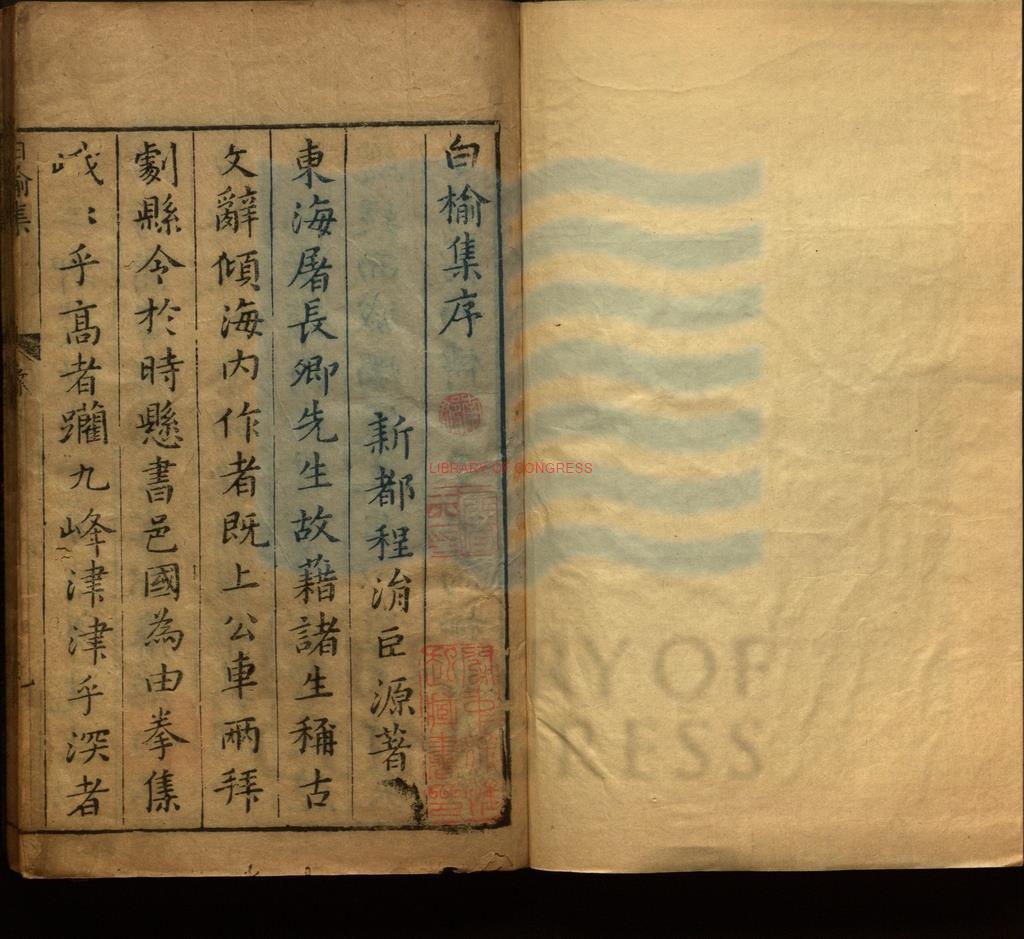 白榆集序
新都程涓臣源著
東海屠長卿先生故藉諸生稱古
文辭傾海內作者既上公車兩拜
劇縣令於時懸書邑國為由拳集
峩〻乎高者躪九峰津津乎深者
白榆集
LIBRARY OF CONGRESS
RY OF
RESS